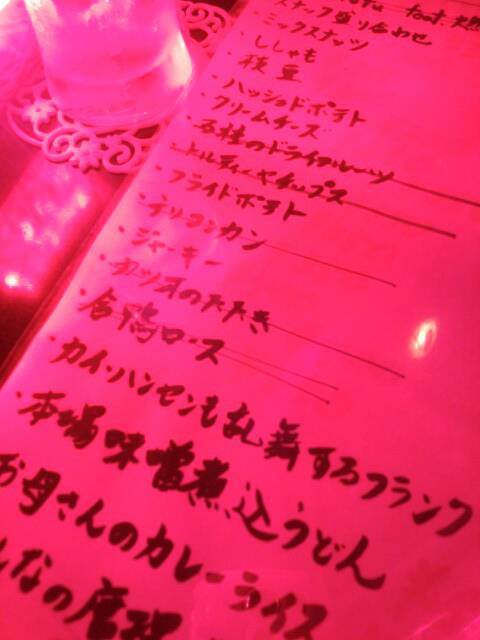 スナック盛り合わせ
・ミックスナッツ
・ししゃも
枝豆
・ハッシュドポテト
・クリームチーズ
・五種のドライフルーツ
・トルティーヤチップス
・フライドポテト
・テリヨンカン
・ジャーキー
・カツオのたたき
・合鴨ロース
・カイ・ハンセンも乱舞するフランク
・本場味噌煮込うどん
お母さんのカレーライス
んなの唐